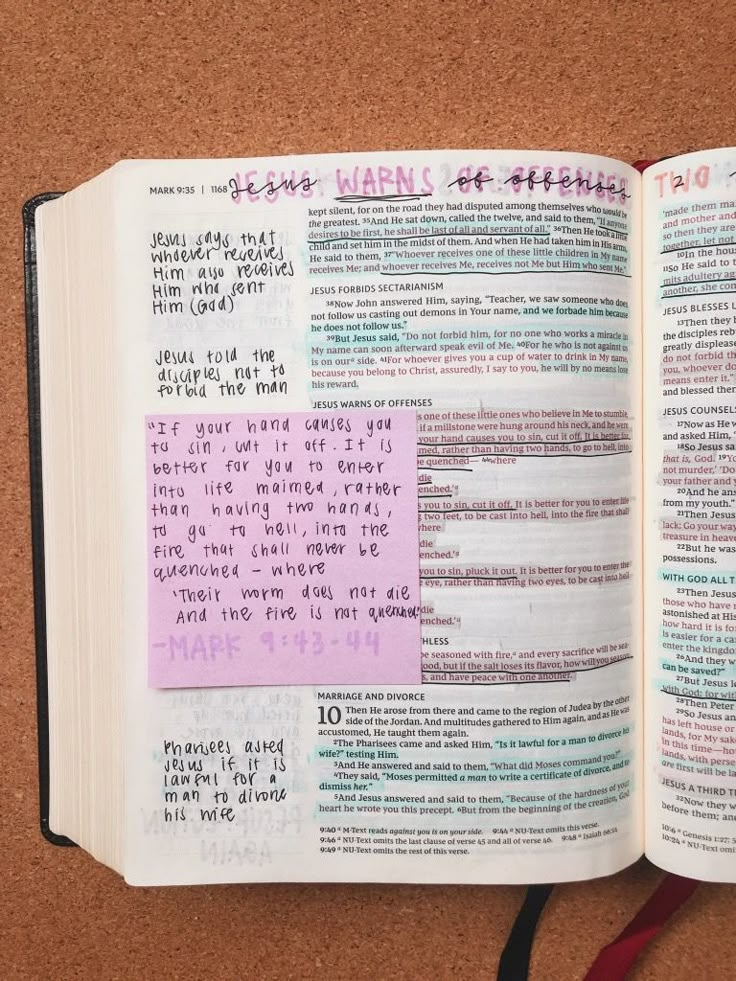 MARK 9:35 | 1168
Jesus WARNS of offenses
JESUS WARNS OF OFFENSES
Jesus says that
whoever receives
Him also receives
Him who sent
Him (God)
Jesus told the
disciples not to
forbid the man
"If your hand causes you
to sin, cut it off. It is
better for you to enter
into life maimed, rather
than having two hands,
to go to hell, into the
fire that shall never be
quenched – where
'Their worm does not die
And the fire is not quenched.'
-MARK 9:43-44
Pharisees asked
Jesus if it is
lawful for a
man to divorce
his wife
kept silent, for on the road they had disputed among themselves who would be
the greatest. 35And He sat down, called the twelve, and said to them, "If anyone
desires to be first, he shall be last of all and servant of all." 36Then He took a little
child and set him in the midst of them. And when He had taken him in His arms,
He said to them, 37"Whoever receives one of these little children in My name
receives Me; and whoever receives Me, receives not Me but Him who sent Me."
JESUS FORBIDS SECTARIANISM
38Now John answered Him, saying, "Teacher, we saw someone who does
not follow us casting out demons in Your name, and we forbade him because
he does not follow us."
39But Jesus said, "Do not forbid him, for no one who works a miracle in
My name can soon afterward speak evil of Me. 40For he who is not against us
is on our a side. 41For whoever gives you a cup of water to drink in My name,
because you belong to Christ, assuredly, I say to you, he will by no means lose
his reward.
JESUS WARNS OF OFFENSES
s one of these little ones who believe in Me to stumble,
if a millstone were hung around his neck, and he were
your hand causes you to sin, cut it off. It is better for
med, rather than having two hands, to go to hell, into
be quenched— 44where
die
enched.'a
s you to sin, cut it off. It is better for you to enter life
two feet, to be cast into hell, into the fire that shall
where
die
enched.'a
you to sin, pluck it out. It is better for you to enter the
eye, rather than having two eyes, to be cast into hell
die
enched.'a
THLESS
be seasoned with fire,a and every sacrifice will be sea-
ood, but if the salt loses its flavor, how will you season
s, and have peace with one another."
MARRIAGE AND DIVORCE
10 Then He arose from there and came to the region of Judea by the other
side of the Jordan. And multitudes gathered to Him again, and as He was
accustomed, He taught them again.
2The Pharisees came and asked Him, "Is it lawful for a man to divorce his
wife?" testing Him.
3And He answered and said to them, "What did Moses command you?"
4They said, "Moses permitted a man to write a certificate of divorce, and to
dismiss her."
5And Jesus answered and said to them, "Because of the hardness of your
heart he wrote you this precept. 6But from the beginning of the creation, God
9:40 a M-Text reads against you is on your side. 9:44 a NU-Text omits this verse.
9:46 a NU-Text omits the last clause of verse 45 and all of verse 46. 9:48 a Isaiah 66:24
9:49 a NU-Text omits the rest of this verse.
TWO
'made them ma
and mother and
so then they are
together, let not
10In the hou
11So He said to
mits adultery ag
another, she con
JESUS BLESSES L
13Then they b
the disciples reb
greatly displease
do not forbid th
you, whoever do
means enter it."
and blessed then
JESUS COUNSELS
17Now as He w
and asked Him, "
18So Jesus sa
that is, God. 19Yo
not murder,' 'Do
your father and y
20And he ans
from my youth."
21Then Jesus
lack: Go your way
treasure in heave
22But he was
possessions.
WITH GOD ALL T
23Then Jesus
those who have r
astonished at His
how hard it is fo
is easier for a ca
enter the kingdo
26And they w
can be saved?"
27But Jesus l
with God; for wit
28Then Peter
29So Jesus an
has left house or
lands, for My sak
in this time—ho
lands, with perse
are first will be la
JESUS A THIRD T
32Now they w
before them; and
10:6 a Genesis 1:27; 5
10:24 a NU-Text omi